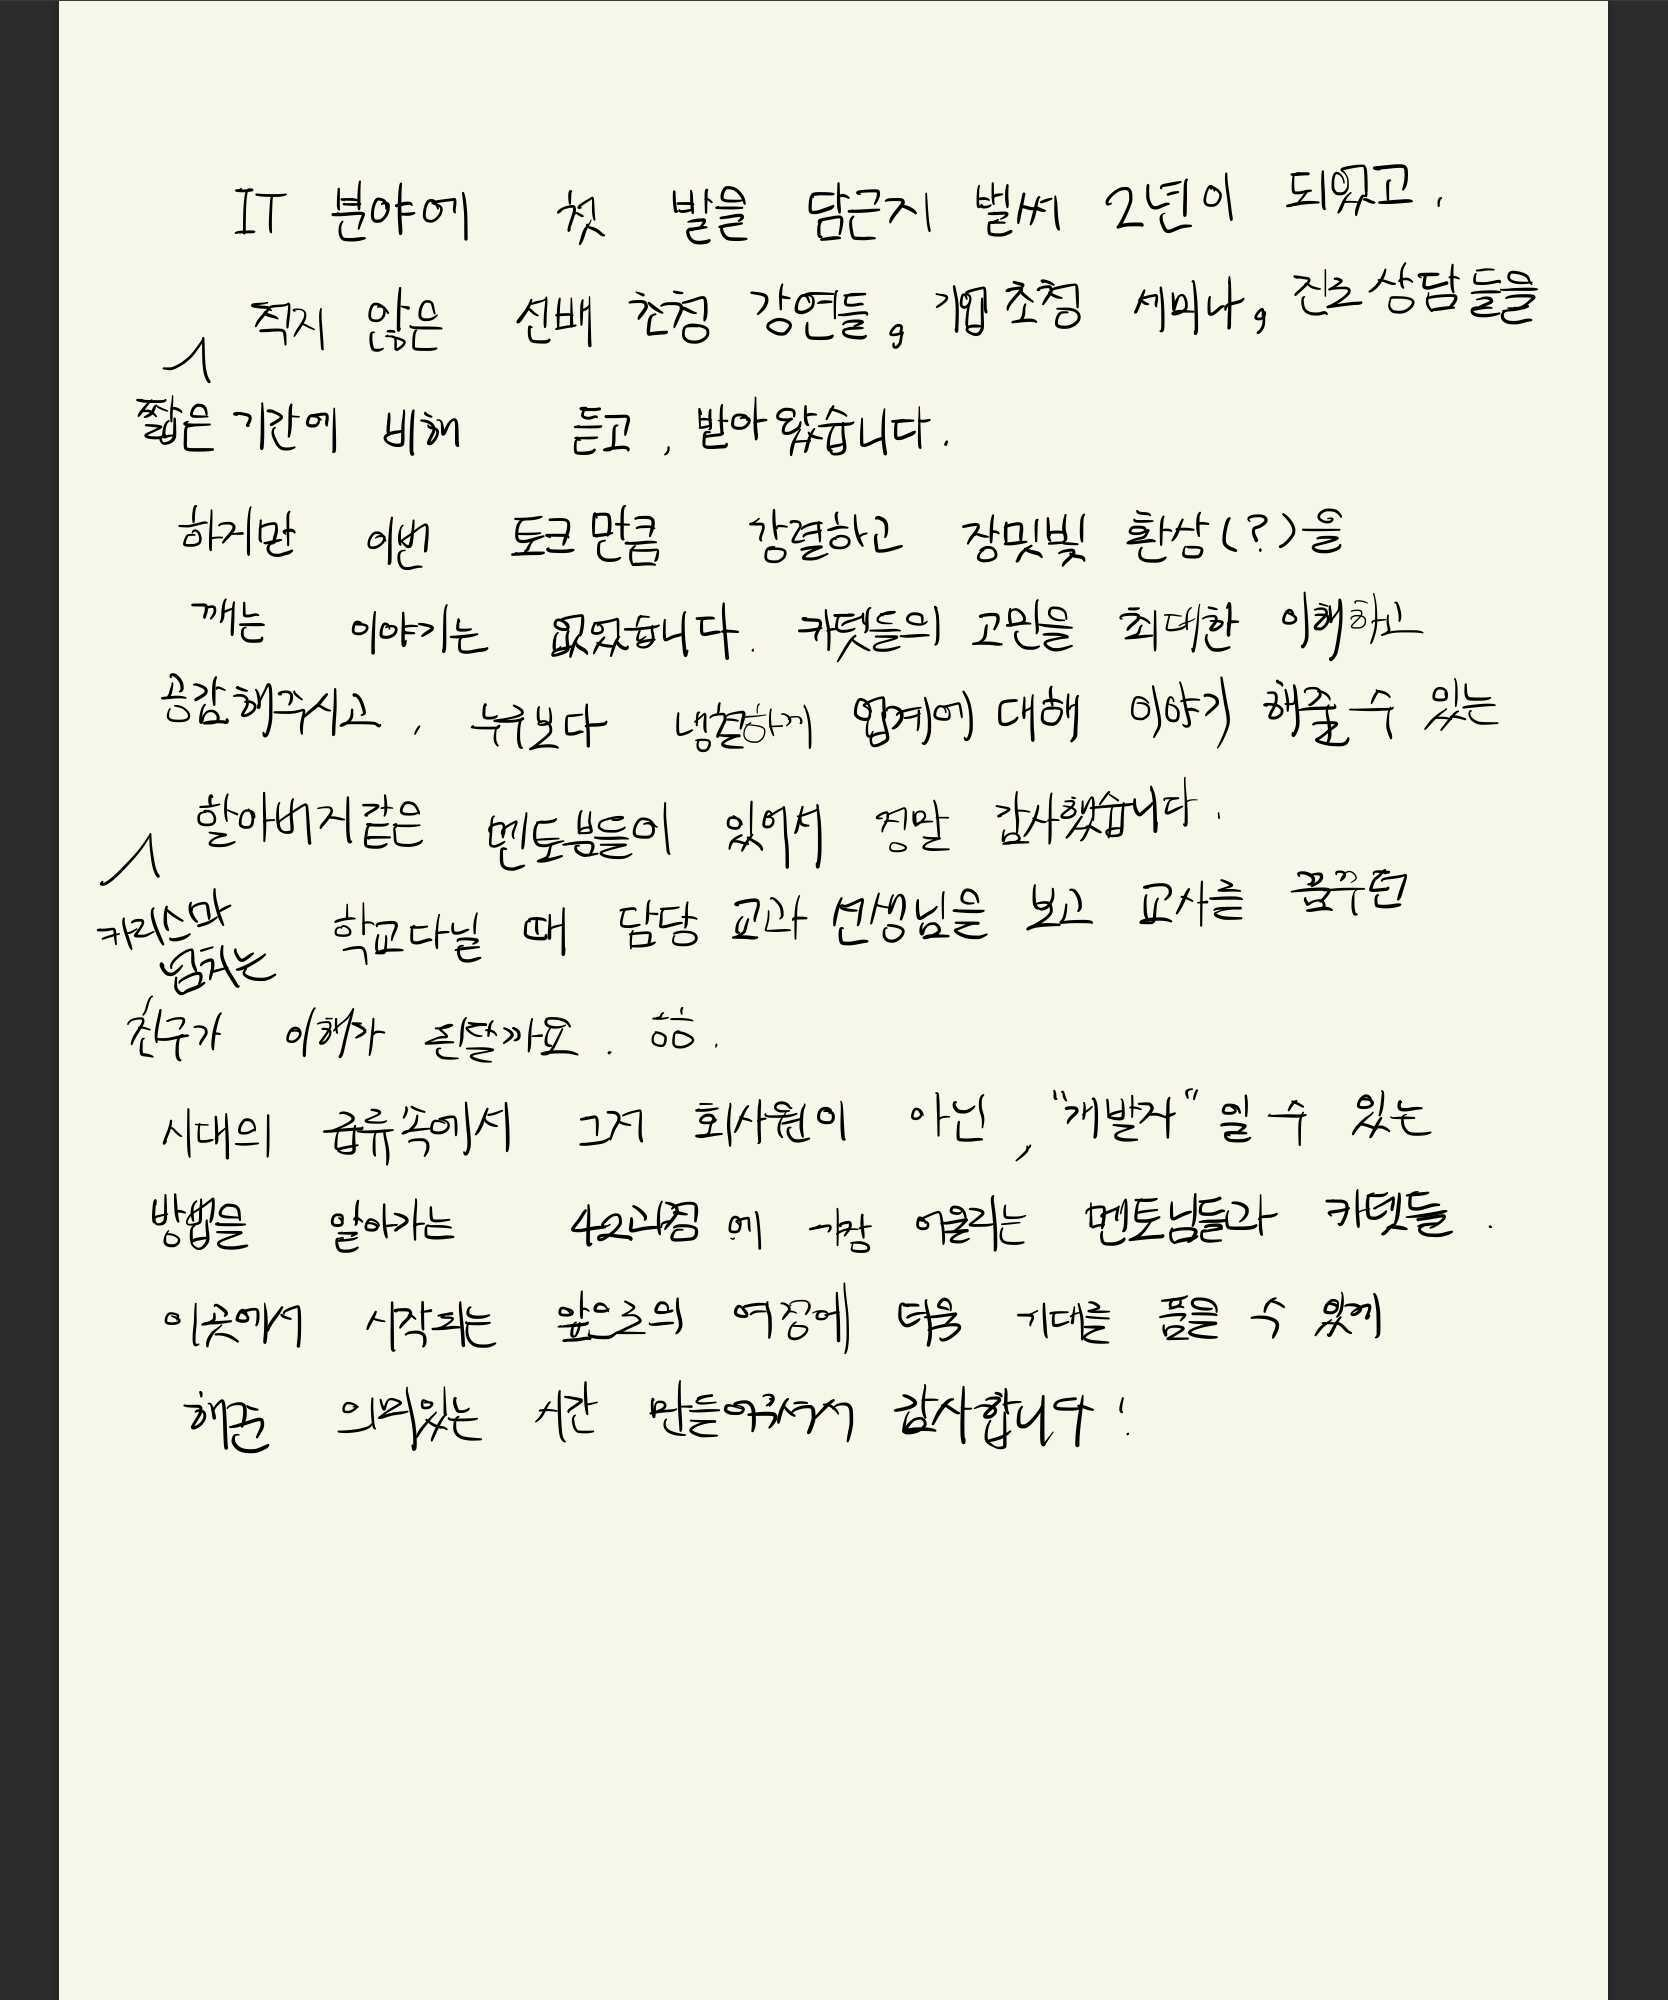 IT 분야에 첫 발을 담근지 벌써 2년이 되었고,
적지 않은 선배 초청 강연들, 기업 초청 세미나, 진로 상담들을
짧은 기간에 비해 듣고, 받아 왔습니다.
하지만 이번 토크 만큼 강렬하고 장밋빛 환상(?)을
깨는 이야기는 없었습니다. 카뎃들의 고민을 최대한 이해하고
공감해주시고, 누구보다 냉철하게 업계에 대해 이야기 해줄 수 있는
할아버지같은 멘토분들이 있어서 정말 감사했습니다.
카리스마
넘치는
학교다닐 때 담당 교과 선생님을 보고 교사를 꿈꾸던
친구가 이해가 된달까요. 흠.
시대의 급류속에서 그저 회사원이 아닌, "개발자" 일 수 있는
방법을 알아가는 42과정에 가장 어울리는 멘토님들과 카뎃들.
이곳에서 시작되는 앞으로의 여정에 더욱 기대를 품을 수 있게
해준 의미있는 시간 만들어주셔서 감사합니다!